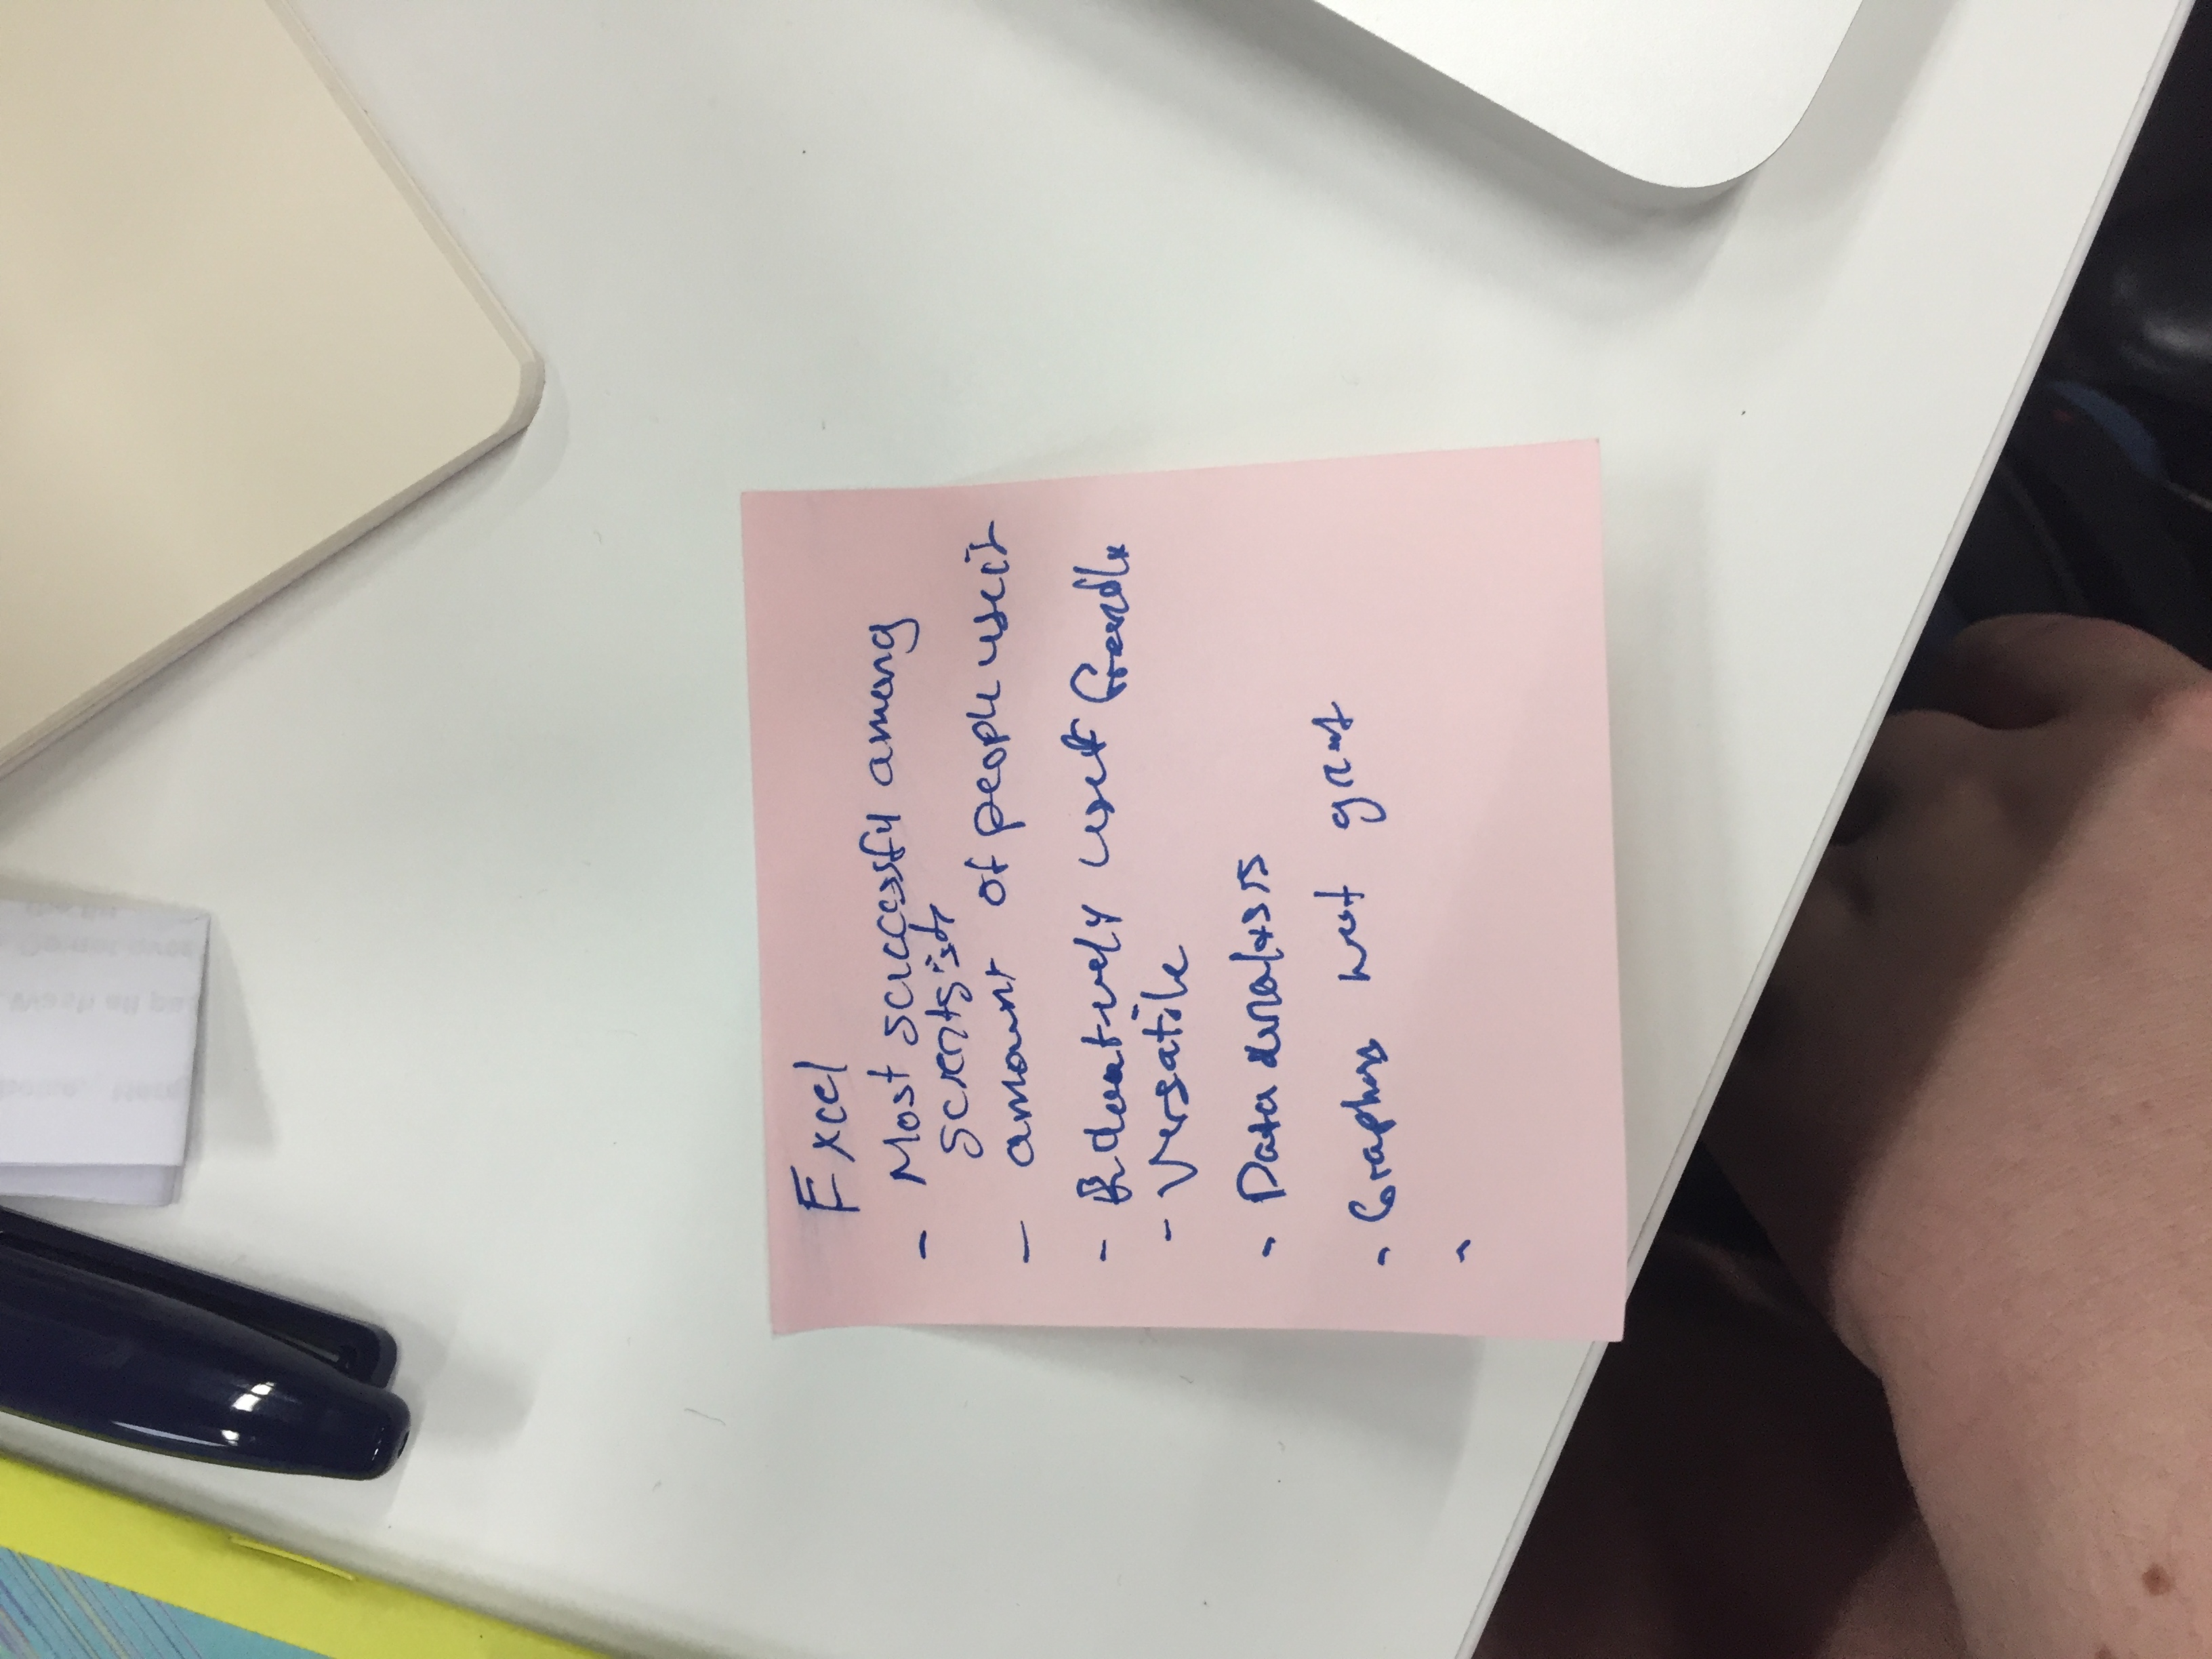 Excel
- Most successful among
scientsists
- amount of people use it
- Relatively user friendly
- Versatile
- Data analysis
- Graphs not great
-